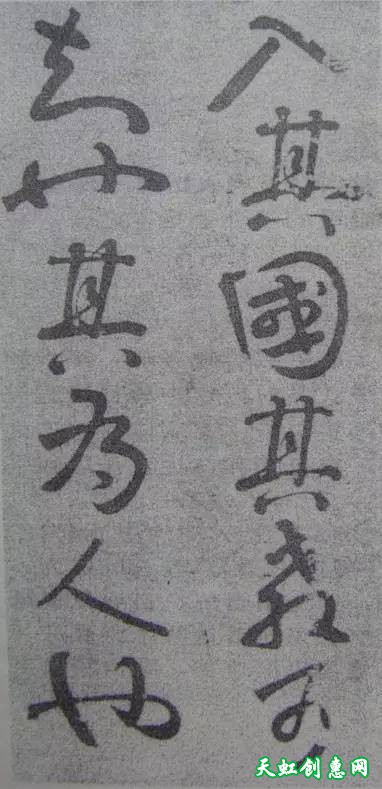 入其國其教可
知也其為人也
天虹创惠网